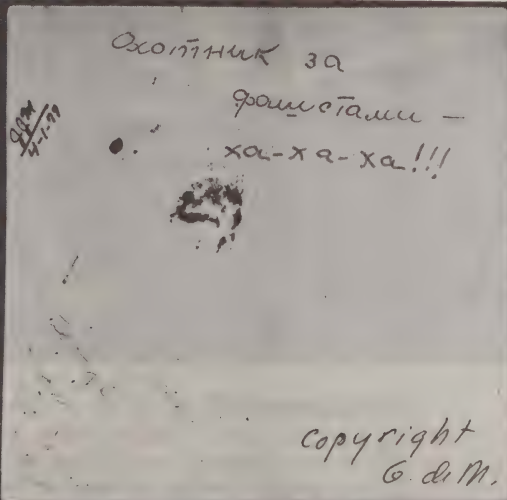 Охотник за
фашистами –
ха-ха-ха!!!
4-1-77
copyright
G. de M.